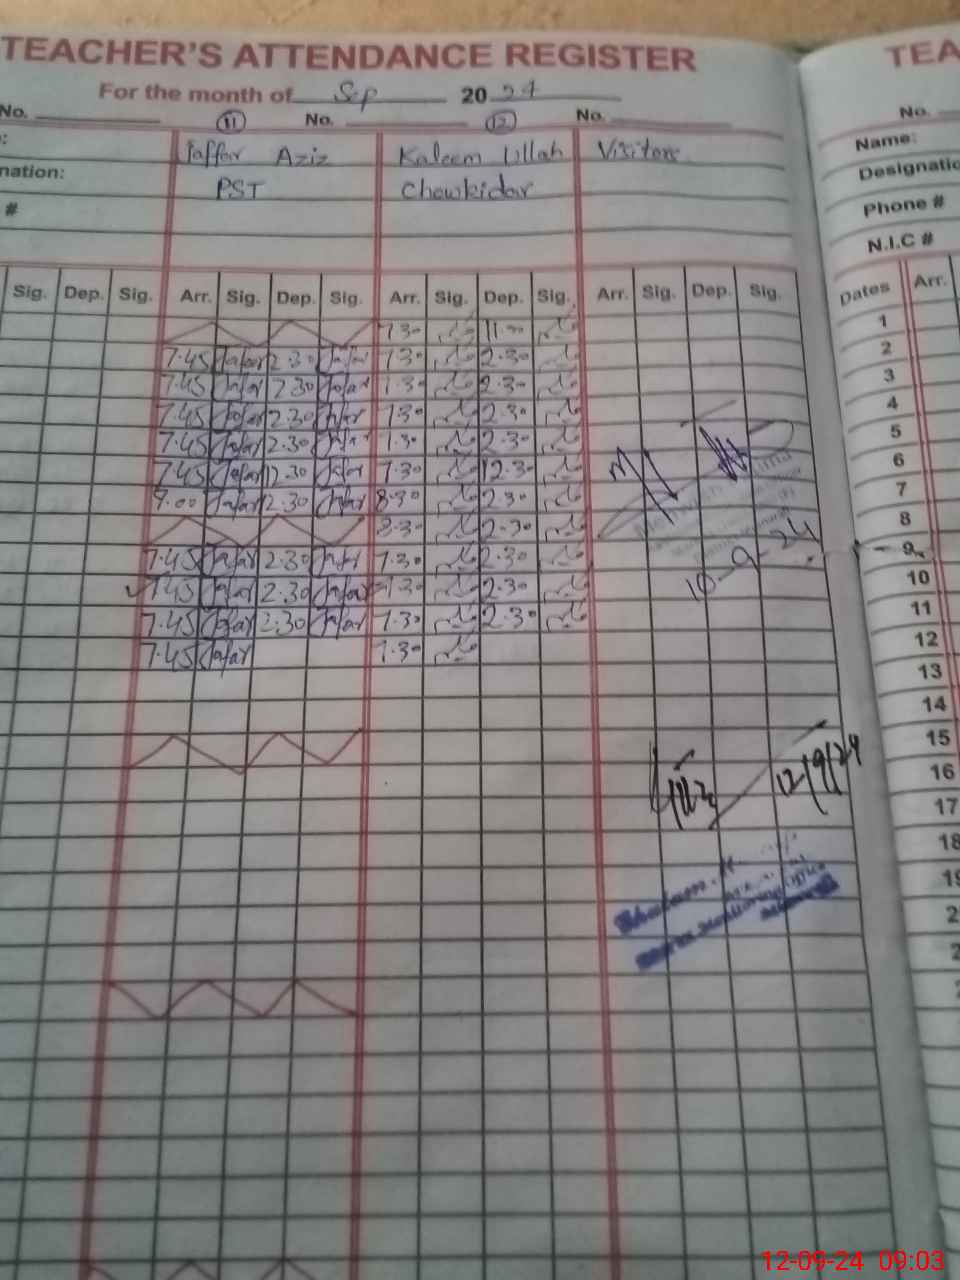 TEACHER'S ATTENDANCE REGISTER
TEA
For the month of Sep 20 24
No. 11 No. 12 No.
No.
Jaffar Aziz Kaleem Ullah Visitors
Name:
nation: PST Chowkidar
Designatio
#
Phone #
N.I.C #
Sig. Dep. Sig. Arr. Sig. Dep. Sig. Arr. Sig. Dep. Sig. Arr. Sig. Dep. Sig.
Dates Arr.
7.30 11.00 1
7.45 Jafar 2.30 Jafar 7.30 2.30 2
7.45 Jafar 2.30 Jafar 7.30 2.30 3
7.45 Jafar 2.30 Jafar 7.30 2.30 4
7.45 Jafar 2.30 Jafar 7.30 2.30 5
7.45 Jafar 12.30 Jafar 7.30 12.30 6
9.00 Jafar 2.30 Jafar 8.30 2.30 7
8.30 2.30 8
7.45 Jafar 2.30 Jafar 7.30 2.30 9
7.45 Jafar 2.30 Jafar 7.30 2.30 10
7.45 Jafar 2.30 Jafar 7.30 2.30 11
7.45 Jafar 7.30 12
10-9-24
13
14
15
16
17
18
12/9/24
Monitoring
12-09-24 09:03